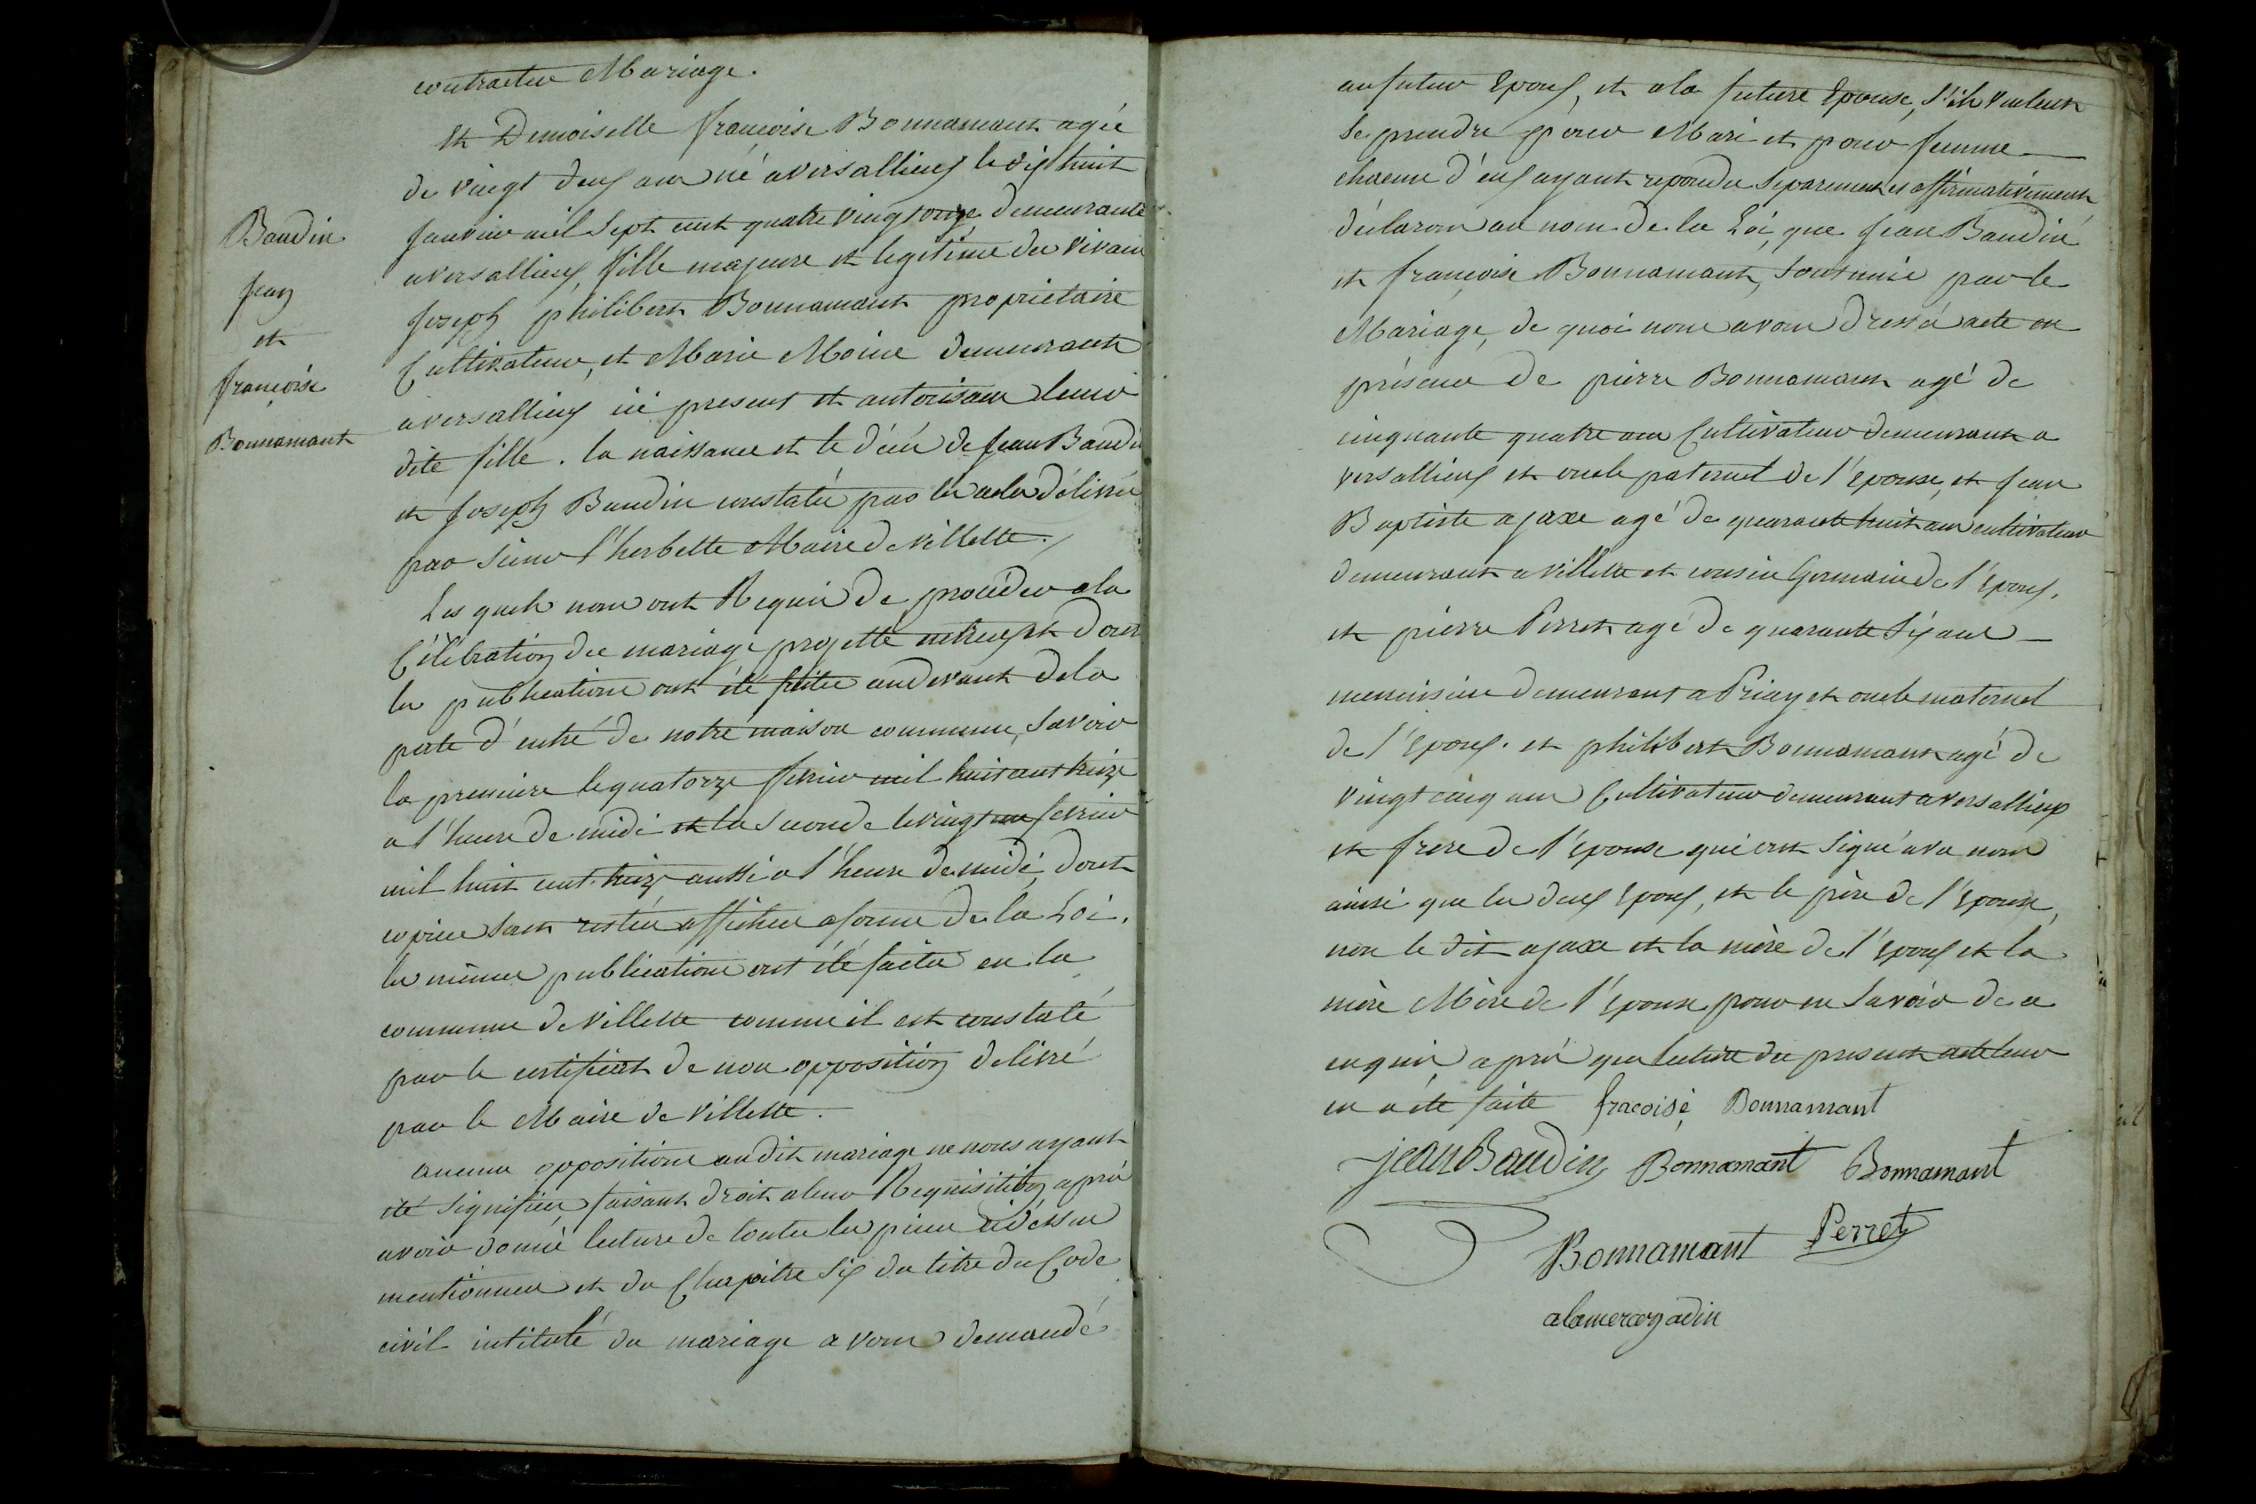 contracter Mariage.
et Demoiselle françoise Bonnamant agée
de vingt deux ans né a versallieux le dix huit
janvier mil sept cent quatre vingt onze demeurante
a versallieux, fille majeure et legitime des vivans
joseph philibert Bonnamant propriétaire
Cultivateur, et Marie Moine demeurant
a versallieux ici present et autorisans leur
dite fille. la naissance et le décés de jean Baudin
et joseph Baudin constatée par les actes délivrés
par sieur l'herbette Maire de villette.
Les quels nous ont Requis de procéder a la
Célébration du mariage projetté entreux et dont
les publications ont été faites au devant de la
porte d'entré de notre maison commune, savoir
la premiere le quatorze fevrier mil huit cent treize
a l'heure de midi et la seconde le vingt un fevrier
mil huit cent treize aussi a l'heure de midi, dont
copies sont restées affichées a forme de la Loi.
les mêmes publications ont été faites en la
commune de villette comme il est constaté
par le certificat de non opposition delivré
par le Maire de villette.
Baudin
jean
et
françoise
Bonnamant
aucunes oppositions audit mariage ne nous ayant
été signifiées, faisant droit a leur Requisition, après
avoir donné lecture de toutes les pieces ci dessus
mentionnées et du Chapitre six du titre du Code
civil intitulé du mariage avons demandé
au futur Epoux, et a la future Epouse, s'ils veulent
se prendre pour Mari et pour femme
chacun d'eux ayant repondu separement et affirmativement
déclarons au nom de la Loi, que jean Baudin
et françoise Bonnamant, sont unis par le
Mariage, de quoi nous avons dressé acte en
présence de pierre Bonnamant agé de
cinquante quatre ans Cultivateur demeurant a
versallieux et oncle paternel de l'épouse, et jean
Baptiste ajaxe agé de quarante huit ans cultivateur
demeurant a villette et cousin Germain de l'Epoux.
et pierre Perret agé de quarante six ans
menuisier demeurant a Priay et oncle maternel
de l'Epoux. et philibert Bonnamant agé de
vingt cinq ans Cultivateur demeurant a versallieux
et frere de l'épouse qui ont signé avec nous
ainsi que les deux Epoux, et le père de l'Epouse,
non le dit ajaxe et la mère de l'epoux et la
mère Mère de l'Epouse pour ne savoir de ce
enquis, après que lecture du present acte leur
en a été faite fracoise Bonnamant
jean Baudin Bonnamant Bonnamant
Bonnamant Perret